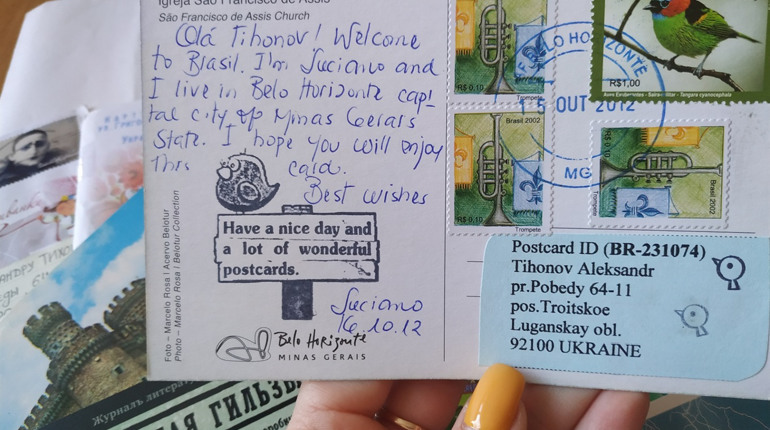 Igreja São Francisco de Assis
São Francisco de Assis Church
Olá Tihonov! Welcome
to Brasil. I'm Luciano and
I live in Belo Horizonte capi-
tal city of Minas Gerais
State. I hope you will enjoy
this card.
Best wishes
Have a nice day and
a lot of wonderful
postcards.
Luciano
16.10.12
Belo Horizonte
MINAS GERAIS
Foto – Marcelo Rosa | Acervo Belotur
Photo – Marcelo Rosa | Belotur Collection
R$ 0,10
Trompete
Brasil 2002
R$ 0,10
Trompete
R$ 0,10
Brasil 2002
Trompete
R$1,00
LO HORIZONTE
15 OUT 2012
MG
Postcard ID (BR-231074)
Tihonov Aleksandr
pr.Pobedy 64-11
pos.Troitskoe
Luganskay obl.
92100 UKRAINE
Журналъ
ГИЛЬЗЫ